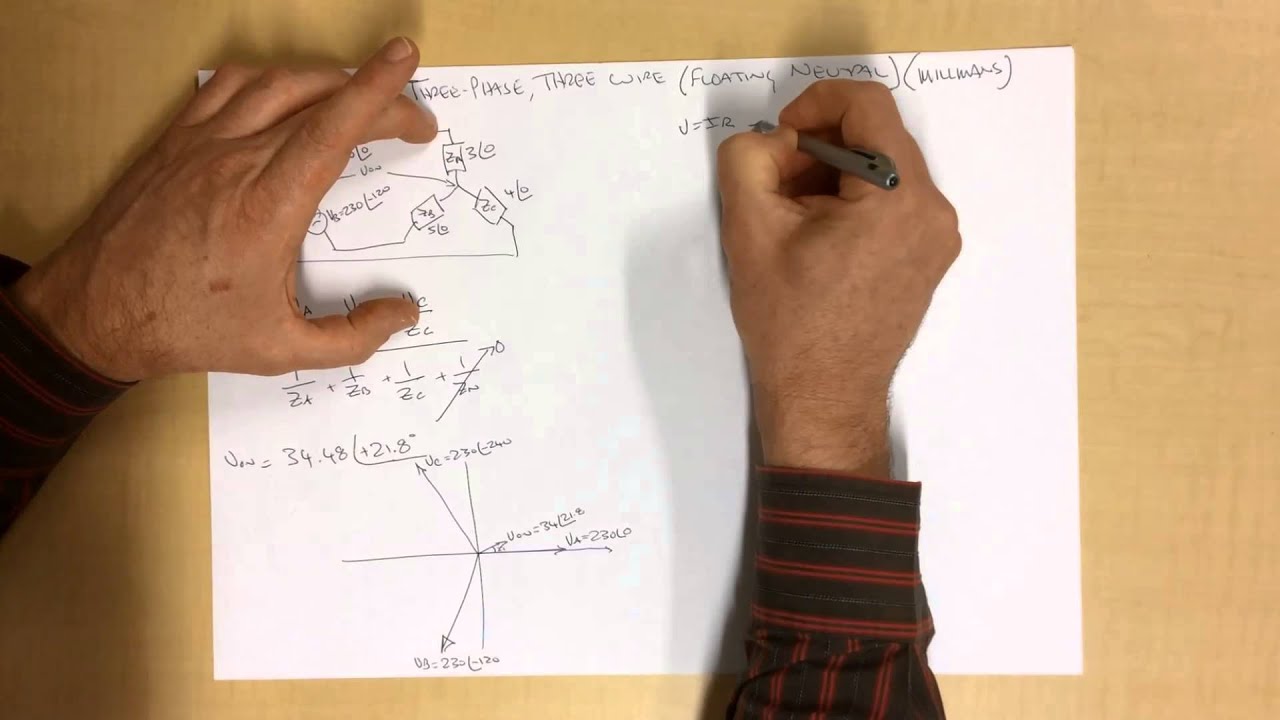 THREE-PHASE, THREE WIRE (FLOATING NEUTRAL) (MILLMANS)
V=IR
3∠0
ZA
VON
4∠0
VB=230∠-120
ZB
ZC
5∠0
VC
ZC
1/ZA + 1/ZB + 1/ZC + 1/ZN 0
VON = 34.48∠+21.8°
VC=230∠-240
VON=34∠21.8
VA=230∠0
VB=230∠-120